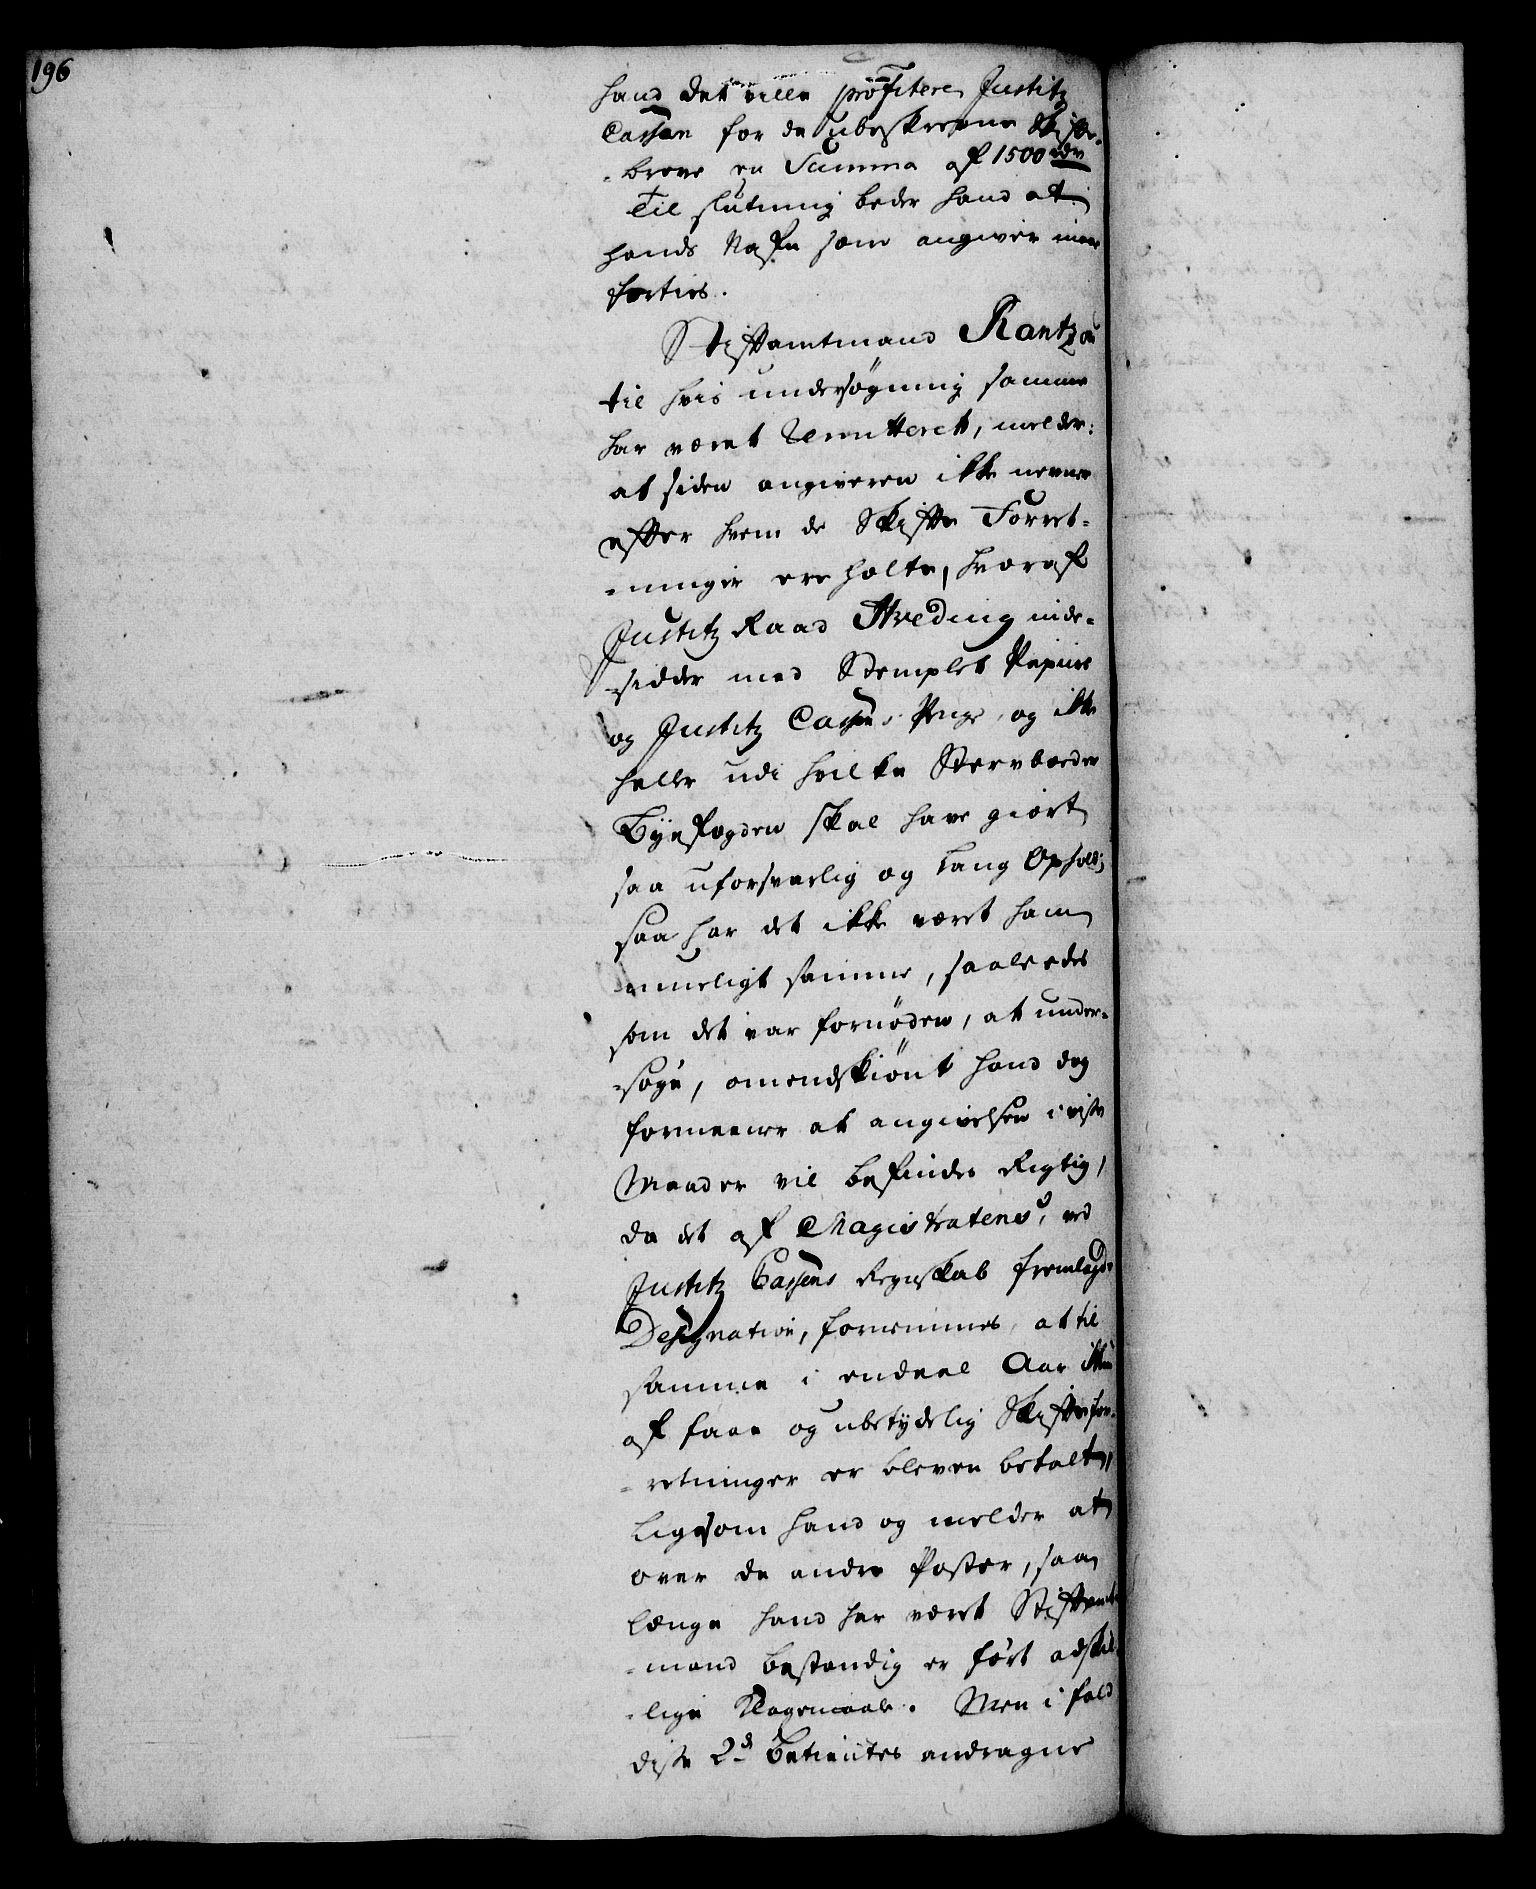 196
hand det ville profitere Justitz
Cassen for de ubeskrevne Skifte-
-breve en Summa af 1500 rdr
Til slutning beder hand at
hands Nafn som angiver maae
forties.
Stiftamtmand Rantzau
til hvis undersøgning samme
har været Remitteret, melder:
at siden angiveren ikke nevner
efter hvem de Skifte Forret-
-ninger ere holte, hvoraf
Justitz Raad Hveding inde-
-sidder med Stemplet Papiir
og Justitz Cassens Penge, og ikke
heller udi hvilke Stervboeder
Byefogden skal have giort
saa uforsvarlig og lang Ophold;
saa har det ikke været ham
mueligt samme, saaledes
som det var fornøden, at under-
-søge, omendskiønt hand dog
formeener at angivelsen i visse
Maader vil befindes Rigtig,
da det af Magistratens, ved
Justitz Cassens Regnskab fremlagde
Designation, fornemmes, at til
samme i endeel Aar ikkun
af faae og ubetydelig Skiftefor-
-retninger er bleven betalt,
ligesom hand og melder at
over de andre Poster, saa
længe hand har været Stiftamt-
-mand bestandig er ført adskil-
-lige Klagemaale. Men i fald
disse 2de Betientes andragne